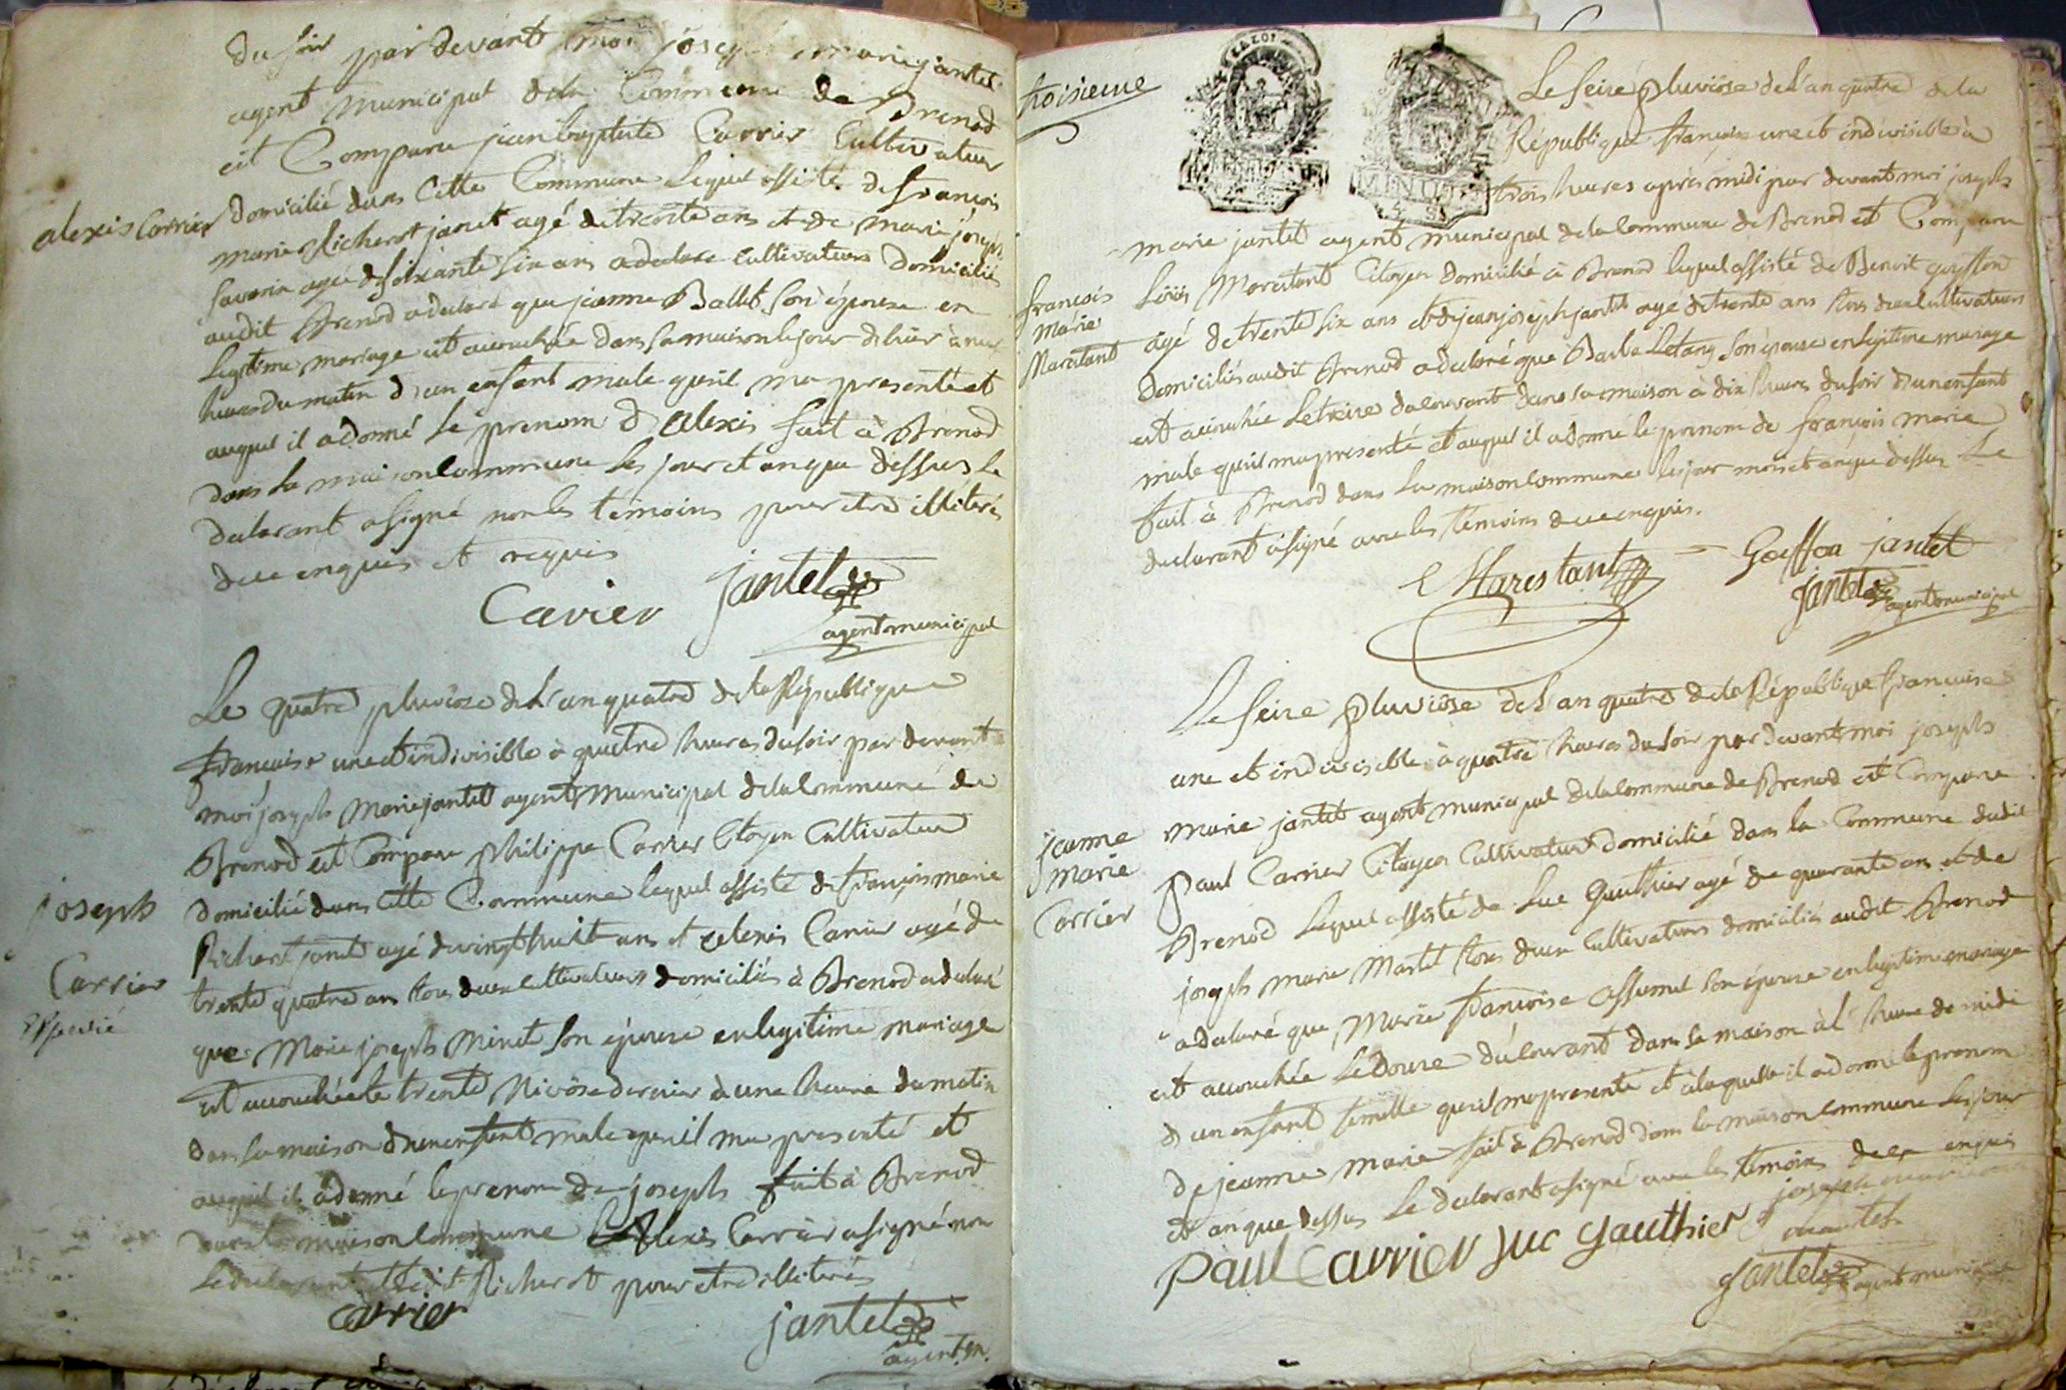 du soir par devant moi joseph marie jantet
agent municipal de la Commune de Brenod
est Comparu jean baptiste Carrier Cultivateur
alexis Carrier
domicilié dans Cette Commune lequel assisté de françois
marie Richerot jantet agé de trente ans et de marie joseph
savarin agé de soixante six ans a declaré cultivateurs domiciliés
audit Brenod a declaré que jeanne Ballet son épouse en
Legitime mariage est accouchée dans sa maison le jour d'hier à neuf
heures du matin d'un enfant male qu'il ma presenté et
auquel il a donné le prenom d'alexis fait à Brenod
dans la maison commune les jour et an que dessus le
declarant a signé non les témoins pour etre illiterés
de ce enquis et requis
Carier jantet
agent municipal
Le quatre pluviôse de L'an quatre de la République
françaíse une et indivisible à quatre heures du soir par devant
moi joseph Marie jantet agent Municipal de la Commune de
Brenod est Comparu philippe Carrier Citoyen Cultivateur
joseph
Carrier
domicilié dans Cette Commune lequel assisté de françois marie
Richerot jantet agé de vingt huit ans et alexis Carrier agé de
trente quatre ans tous deux cultivateurs domiciliés à Brenod a declaré
que Marie joseph Minet son épouse en legitime mariage
est accouchée le trente Nivôse dernier à une heure du matin
dans sa maison d'un enfant male qu'il ma presenté et
auquel il a donné le prenom de joseph fait à Brenod
dans la maison Commune Alexis Carrier a signé non
le declarant et Richerot pour etre illiterés
carrier
jantet
agent m.
troisieme
Le seize pluviôse de L'an quatre de la
République française une et indivisible à
trois heures après midi par devant moi joseph
MINUTE
marie jantet agent municipal de la Commune de Brenod est Comparu
françois
Marie
Marestant
Loüis Marestant Citoyen domicilié à Brenod lequel assisté de Benoit goyffon
agé de trente six ans et de jean joseph jantet agé de trente ans tous deux Cultivateurs
domiciliés audit Brenod a declaré que Barbe Letang son épouse en legitime mariage
est accouchée le treize du courant dans sa maison à dix heures du soir d'un enfant
male qu'il ma presenté et auquel il a donné le prenom de françois marie
fait à Brenod dans la maison commune les jour mois et an que dessus Le
declarant a signé avec les témoins de ce enquis.
Marestant Goiffon jantet
jantet agent municipal
Le seize pluviôse de L'an quatre de la République française
une et indivisible à quatre heures du soir par devant moi joseph
jeanne
marie
Carrier
marie jantet agent municipal de la Commune de Brenod est Comparu
Paul Carrier Citoyen Cultivateur domicilié dans la Commune dudit
Brenod lequel assisté de Luc Gauthier agé de quarante ans et de
joseph marie Martel tous deux Cultivateurs domiciliés audit Brenod
a declaré que Marie françoise assumel son épouse en legitime mariage
est accouchée Le Douze du courant dans sa maison à l'heure de midi
d'un enfant femelle qu'il ma presenté et à laquelle il a donné le prenom
de jeanne marie fait à Brenod dans la maison commune les jour
et an que dessus Le declarant a signé avec les témoins de ce enquis
Paul Carrier Luc gauthier joseph marie
martel
jantet agent municipal